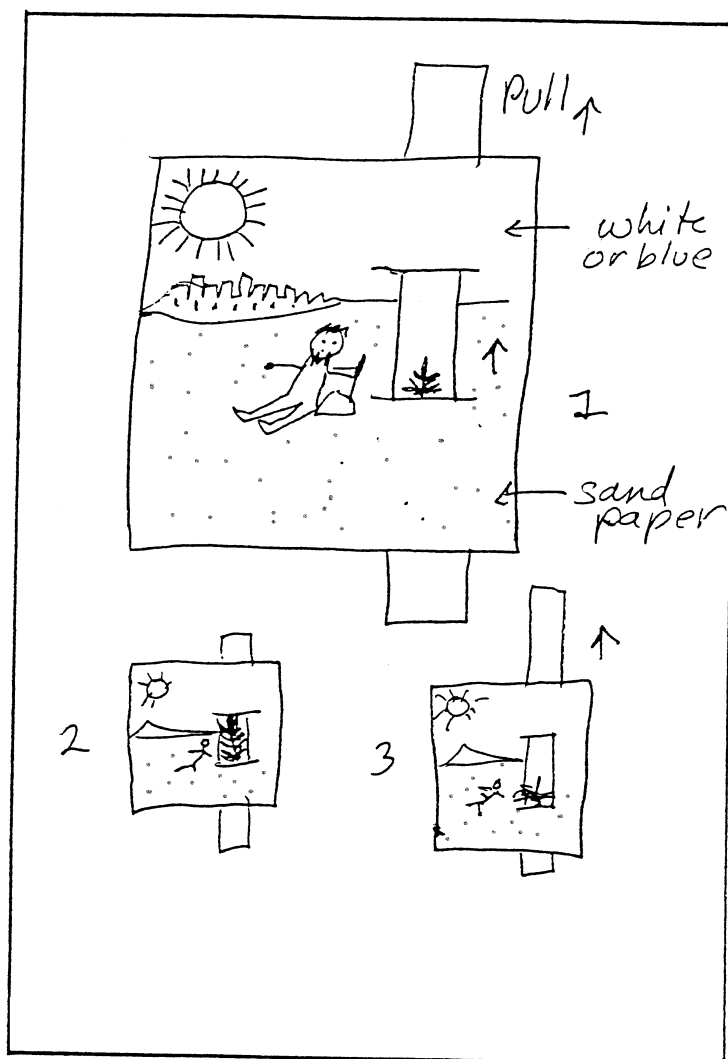 Pull ↑
white
or blue
1
sand
paper
2
3